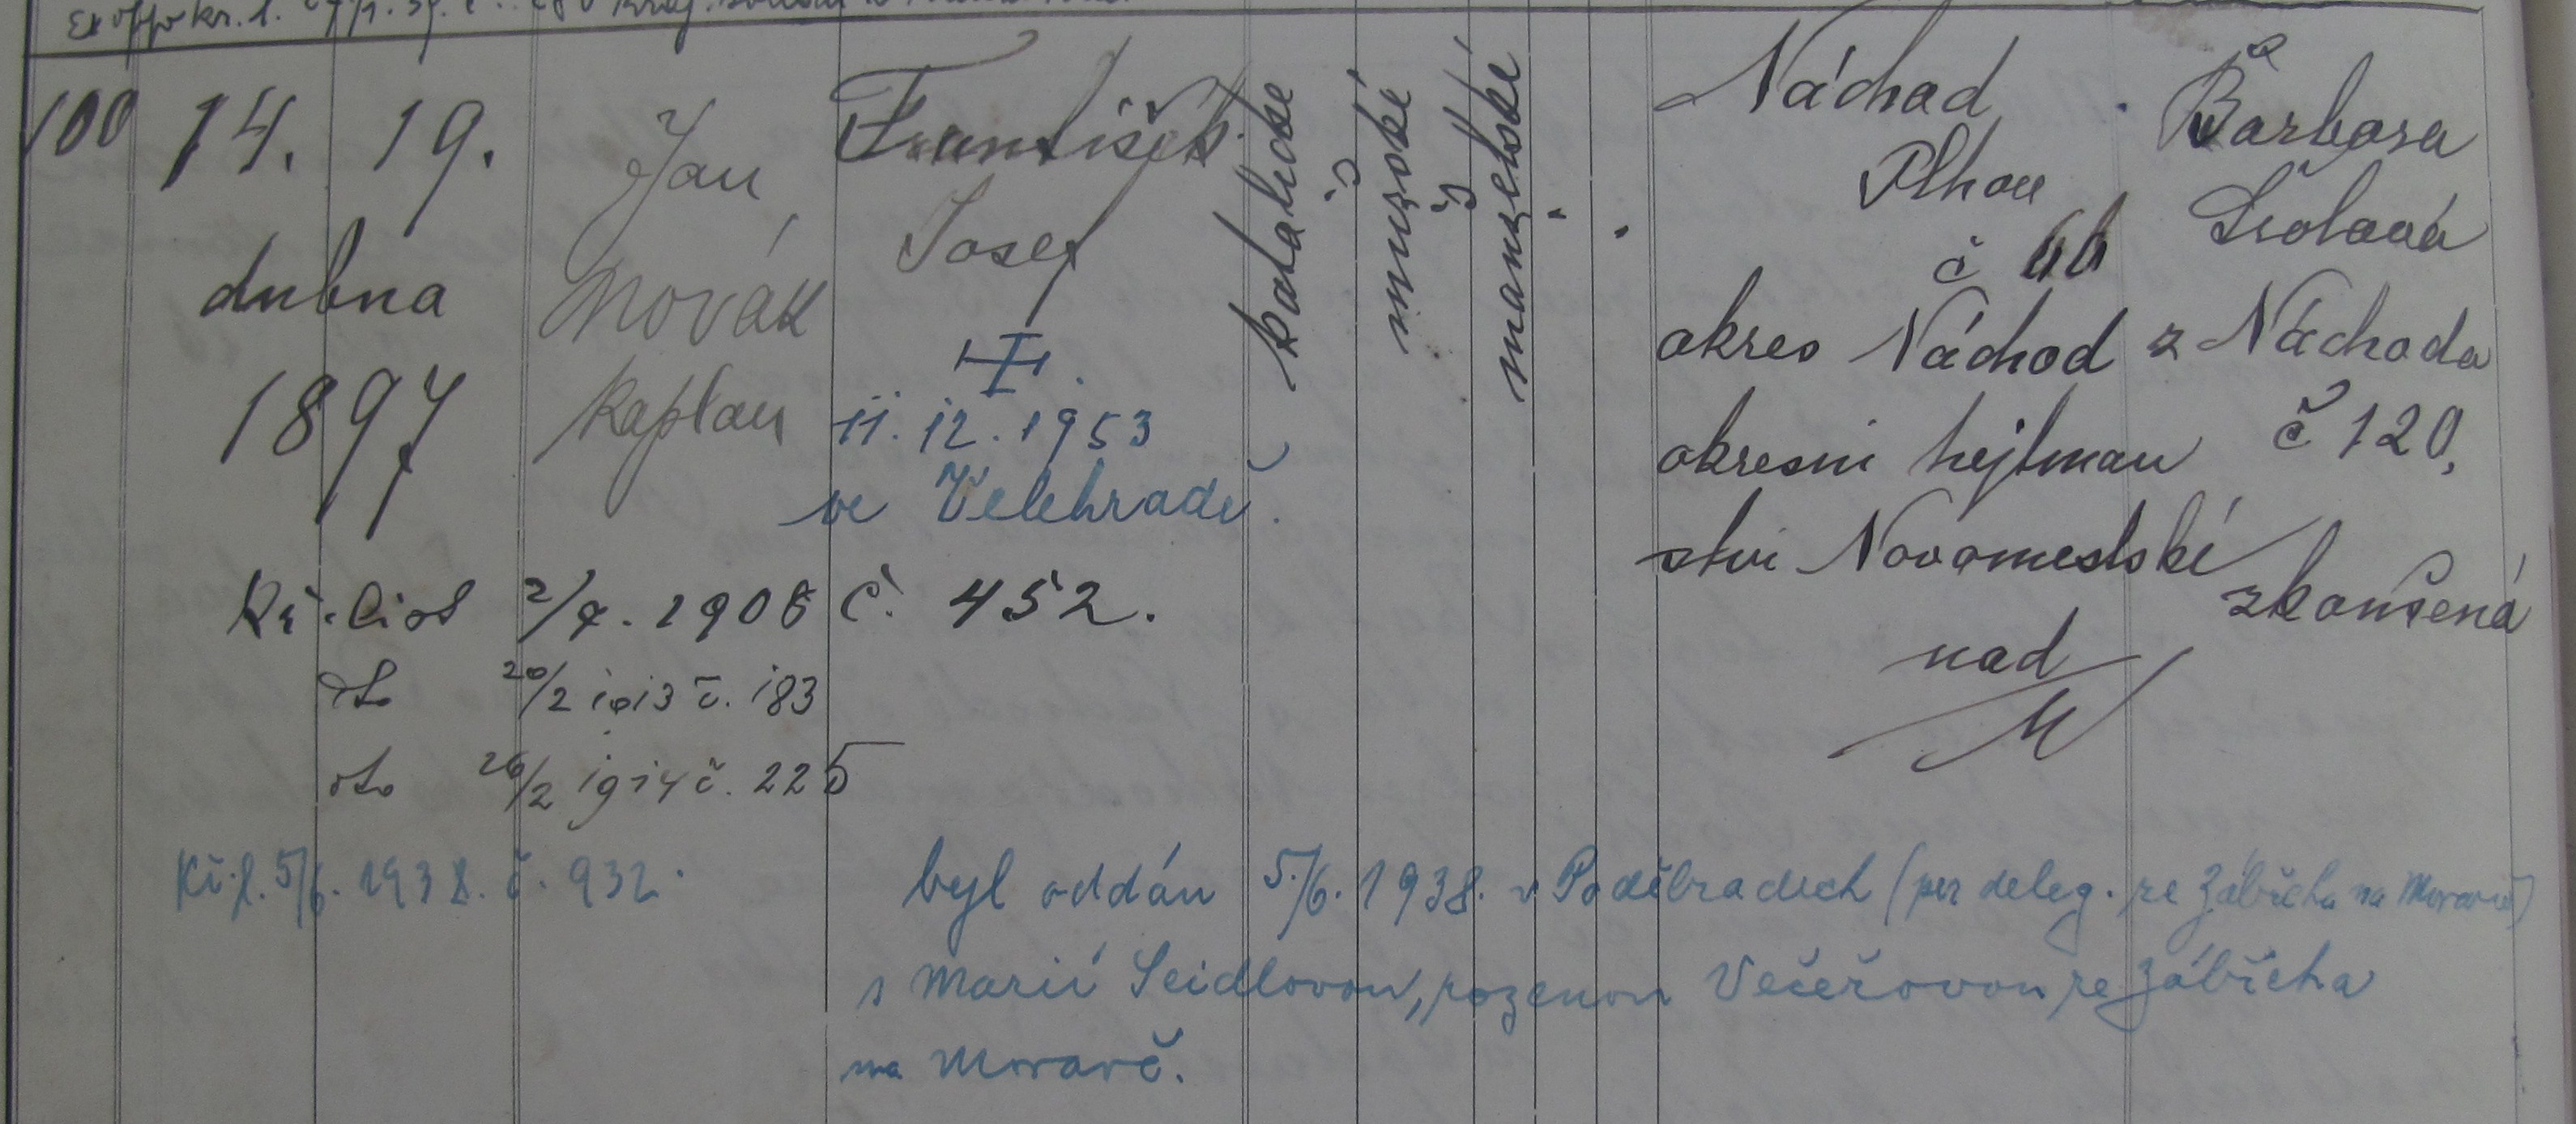 100
14.
19.
dubna
1897
Jan
Novák
kaplan
František
Josef
11. 12. 1953
ve Velehradě.
katolické
mužské
manželské
Náchod
Plhov
č
okres Náchod
okresní hejtman
ství Novoměstské
nad
M
Barbora
z Náchoda
č 120,
zkoušená
Kř. list 2/7. 1906 č. 452.
dto 20/2 1913 č. 183
dto 26/2 1914 č. 225
Kř. l. 5/6. 1938. č. 932.
byl oddán 5./6. 1938. v Poděbradech (per deleg. ze Zábřeha na Moravě)
s Marií Seidlovou, rozenou Večeřovou ze Zábřeha
na Moravě.